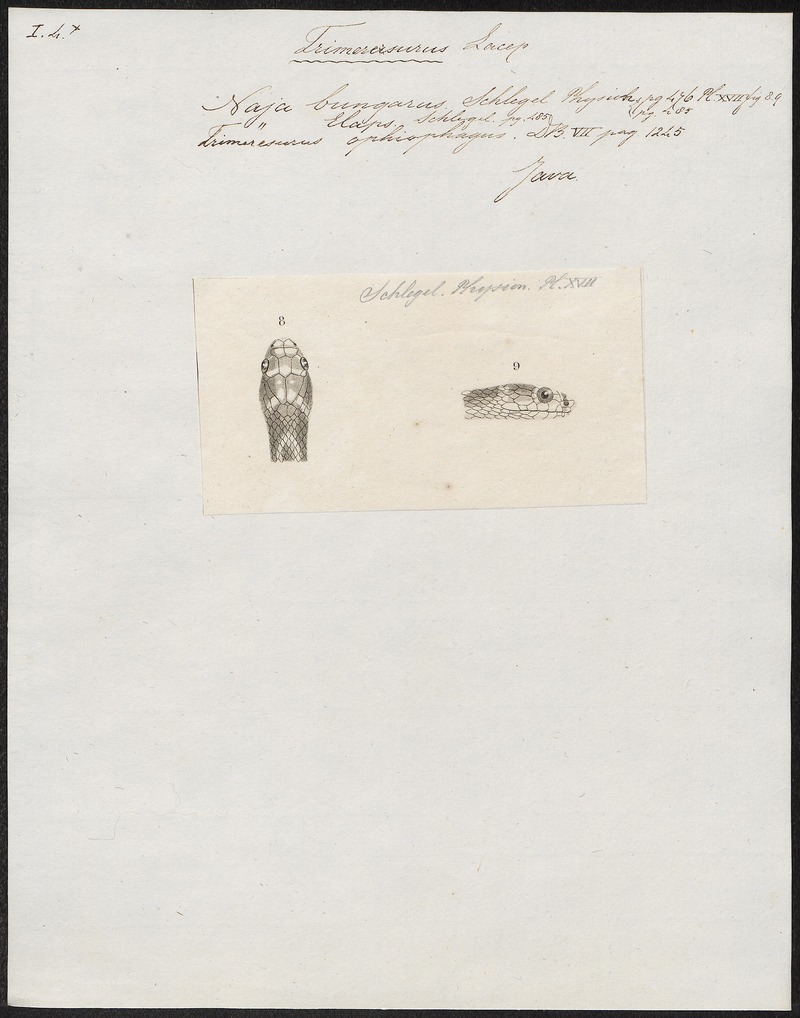 I. 4. x
Trimeresurus Lacep
Naja bungarus. Schlegel Physion pg 476 Pl. XVII fig 8.9
" Elaps. Schlegel. pg. 485 pg. 485
Trimeresurus ophiophagus. DB. VII pag 1245
Java.
Schlegel. Physion. Pl. XVII
8
9